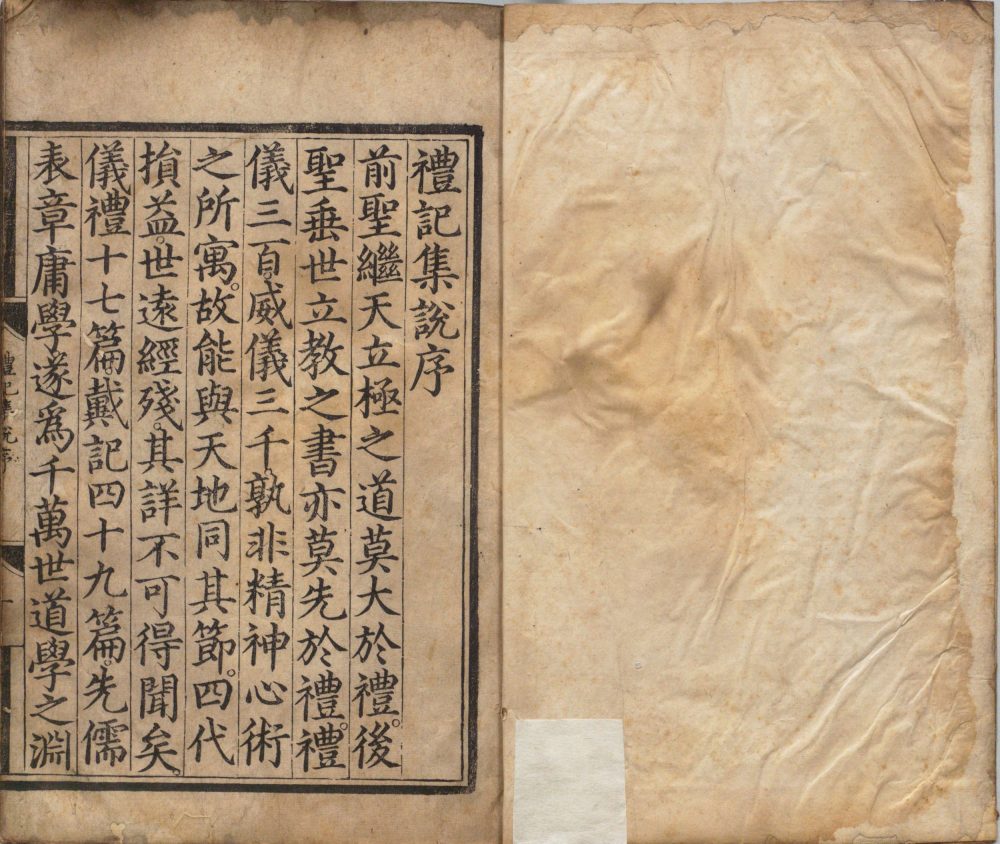 禮記集說序
前聖繼天立極之道莫大於禮。後
聖垂世立教之書亦莫先於禮。禮
儀三百。威儀三千。孰非精神心術
之所寓。故能與天地同其節。四代
損益。世遠經殘。其詳不可得聞矣。
儀禮十七篇。戴記四十九篇。先儒
表章庸學遂爲千萬世道學之淵
禮記集說序
一